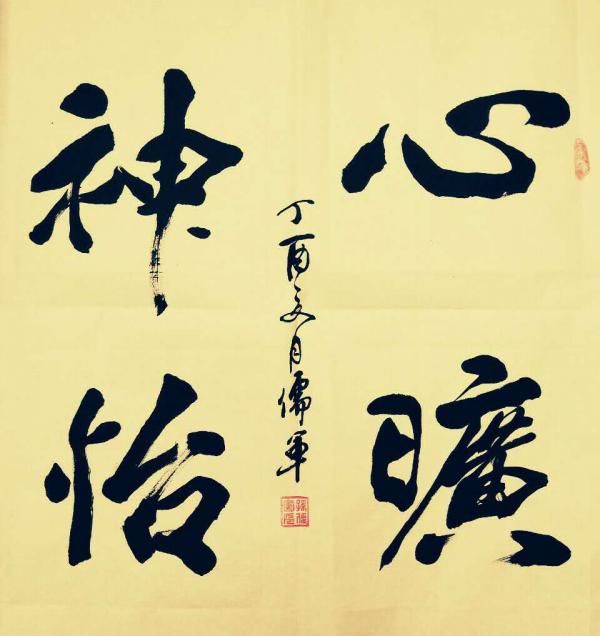 心曠
神怡
丁酉月儒军